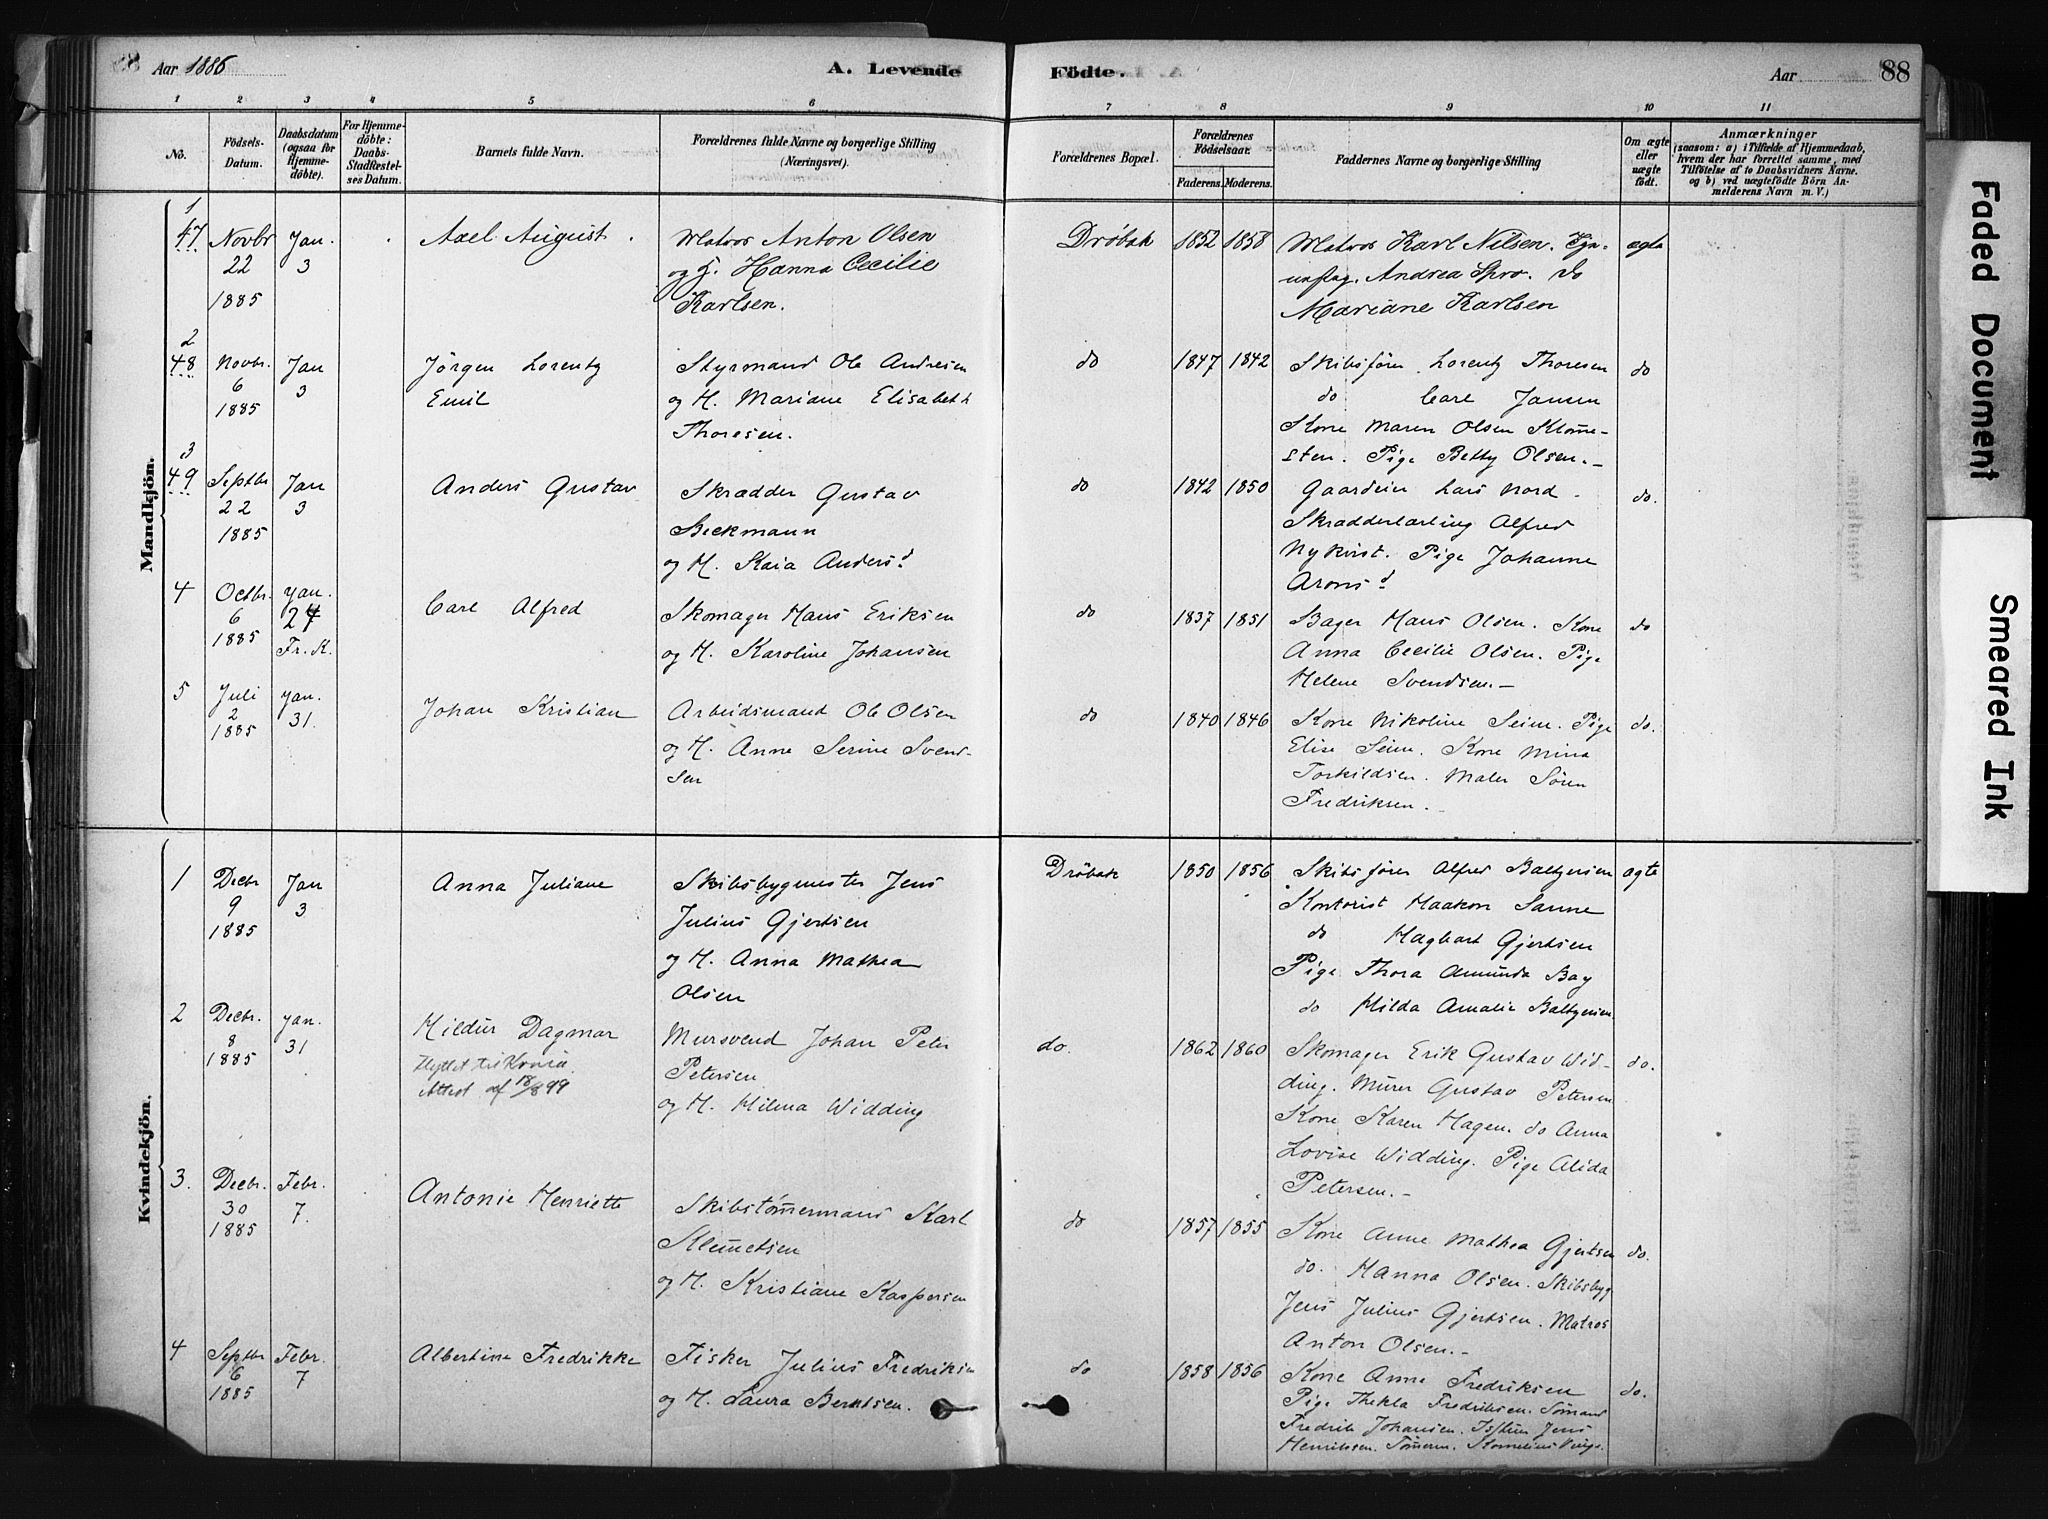 Aar 1886
A. Levende
Födte.
Aar
88
1 2 3 4 5 6 7 8 9 10 11
No.
Födsels-
Datum.
Daabsdatum
(ogsaa for
Hjemme-
döbte).
For Hjemme-
döbte:
Daabs-
Stadfæstel-
ses Datum.
Barnets fulde Navn.
Forældrenes fulde Navne og borgerlige Stilling
(Næringsvei).
Forældrenes Bopæl.
Forældrenes
Födselsaar.
Faderens. Moderens.
Faddernes Navne og borgerlige Stilling
Om ægte
eller
uægte
födt.
Anmærkninger
(saasom: a) i Tilfælde af Hjemmedaab,
hvem der har forrettet samme, med
Tilföielse af to Daabsvidners Navne.
og b) ved uægtefödte Börn An-
melderens Navn m. V.)
Mandkjön.
1
47
Novbr
22
1885
Jan.
3
Axel August.
Matros Anton Olsen
og H. Hanna Cecilie
Karlsen.
Dröbak
1852 1858
Matros Karl Nilsen.
Andrea Spro. do
Mariane Karlsen
ægte
2
48
Novbr.
6
1885
Jan
3
Jörgen Lorentz
Emil
Styrmand Ole Andresen
og H. Mariane Elisabeth
Thoresen.
do
1847 1842
Skibsförer Lorentz Thoresen
do Carl Jansen
Kone Maren Olsen Klomme-
sten. Pige Betty Olsen.-
do
3
49
Septbr
22
1885
Jan
3
Anders Gustav
Skrædder Gustav
Beckmann
og H. Kaia Andersd
do
1842 1850
Gaardeier Lars Nord
Skrædderlærling Alfred
Nykvist. Pige Johanne
Aronsd
do.
4
Octbr.
6
1885
Jan.
24
Fr. K.
Carl Alfred
Skomager Hans Eriksen
og H. Karoline Johansen
do
1837 1851
Bager Hans Olsen. Kone
Anna Cecilie Olsen. Pige
Helene Svendsen.-
do
5
Juli
2
1885
Jan.
31.
Johan Kristian
Arbeidsmand Ole Olsen
og H. Anne Serine Svend-
sen
do
1840 1846
Kone Nikoline Seim. Pige
Elise Seim. Kone Mina
Torkildsen. Maler Sören
Fredriksen.-
do.
Kvindekjön.
1
Decbr
9
1885
Jan
3
Anna Juliane
Skibsbygmester Jens
Julius Gjertsen
og H. Anna Mathea
Olsen
Dröbak
1850 1856
Skibsförer Alfred Baltzersen
Kontorist Haakon Sanne
do Hagbart Gjertsen
Pige Thora Amunda Bay
do Hilda Amalie Baltzersen
ægte
2
Decbr.
8
1885
Jan.
31
Hildur Dagmar
Flyttet til Krnia.
Attest af 18/8 99
Mursvend Johan Peter
Petersen
og H. Hilma Widding
do.
1862 1860
Skomager Erik Gustav Wid-
ding. Murer Gustav Petersen
Kone Karen Hagen. do Anna
Lovise Widding. Pige Alida
Petersen.-
do.
3.
Decbr.
30
1885
Febr.
7.
Antonie Henriette
Skibstömmermand Karl
Klemetsen
og H. Kristiane Kaspersen
do
1857 1855
Kone Anne Mathea Gjertsen
do. Hanna Olsen. Skibsbyg
Jens Julius Gjertsen. Matros
Anton Olsen.-
do.
4
Septbr
6
1885
Febr.
7
Albertine Fredrikke
Fisker Julius Fredriksen
og H. Laura Berntsen.
do
1858 1856
Kone Anne Fredriksen
Pige Thekla Fredriksen. Sömand
Fredrik Johansen. Jens
Henriksen. Tömerm. Kornelius
do.
Faded Document
Smeared Ink